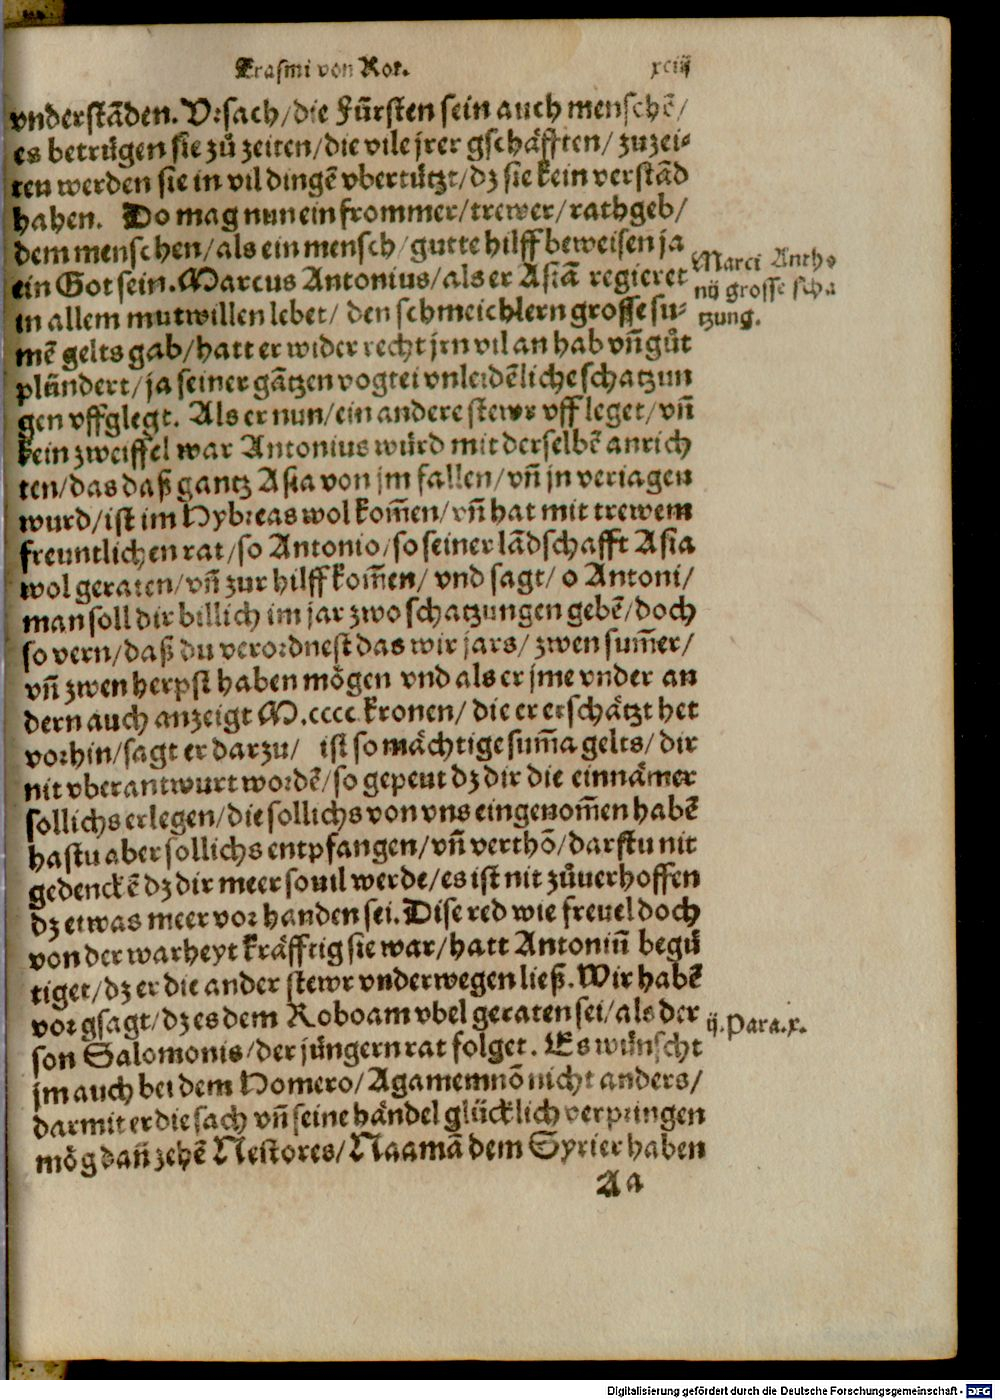 Erasmi von Rot. xciij
vnderstãden. Vrsach/die Fürsten sein auch menschẽ/
es betrügen sie zů zeiten/die vile jrer gschäfften/ zuzei-
ten werden sie in vil dingẽ vbertützt/dz sie kein verstãd
haben. Do mag nun ein frommer/trewer/rathgeb/
dem menschen/als ein mensch/gutte hilff beweisen ja
ein Got sein. Marcus Antonius/als er Asiã regieret
in allem mutwillen lebet/ den schmeichlern grosse su-
mẽ gelts gab/hatt er wider recht jrn vil an hab vñ gůt
pländert/ja seiner gãtzen vogtei vnleidẽliche schatzun
gen vffglegt. Als er nun/ein andere stewr vff leget/vñ
kein zweiffel war Antonius würd mit derselbẽ anrich
ten/das daß gantz Asia von jm fallen/vñ jn veriagen
wurd/ist im Hybreas wol kom̃en/vñ hat mit trewem
freuntlichen rat/so Antonio/so seiner lãdschafft Asia
wol geraten/vñ zur hilff kom̃en/ vnd sagt/ o Antoni/
man soll dir billich im jar zwo schatzungen gebẽ/doch
so vern/daß du verordnest das wir jars/ zwen sum̃er/
vñ zwen herpst haben mögen vnd als er jme vnder an
dern auch anzeigt M.cccc kronen/ die er erschätzt het
vorhin/sagt er darzu/ ist so mächtige sum̃a gelts/ dir
nit vberantwurt wordẽ/so gepeut dz dir die einnämer
sollichs erlegen/die sollichs von vns eingenom̃en habẽ
hastu aber sollichs entpfangen/vñ verthõ/darstu nit
gedenckẽ dz dir meer souil werde/es ist nit zůuerhoffen
dz etwas meer vor handen sei. Dise red wie freuel doch
von der warheyt kräfftig sie war/hatt Antoniũ begü
tiget/dz er die ander stewr vnderwegen ließ. Wir habẽ
vor gsagt/dz es dem Roboam vbel geraten sei/als der
son Salomonis/der jüngern rat folget. Es wünscht
jm auch bei dem Homero/Agamemnõ nicht anders/
darmit er die sach vñ seine händel glücklich verpringen
mög dañ zehẽ Nestores/Naamã dem Syrier haben
Aa
Marci Antho
nij grosse scha
tzung.
ij. Para.x.
Digitalisierung gefördert durch die Deutsche Forschungsgemeinschaft - DFG